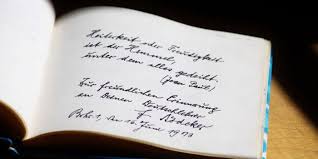 Heiterkeit oder Freudigkeit
ist der Himmel,
unter dem alles gedeiht.
(Jean Paul)
Zur freundlichen Erinnerung
an Deinen
F.
den 10. Juni 1973